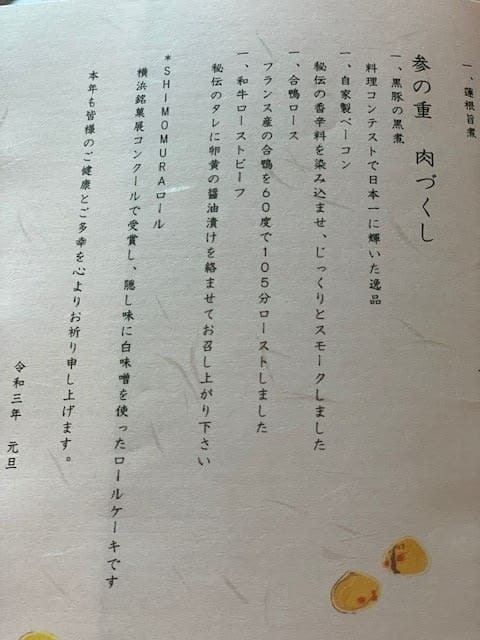 一、蓮根旨煮
参の重　肉づくし
一、黒豚の黒煮
料理コンテストで日本一に輝いた逸品
一、自家製ベーコン
秘伝の香辛料を染み込ませ、じっくりとスモークしました
一、合鴨ロース
フランス産の合鴨を60度で105分ローストしました
一、和牛ローストビーフ
秘伝のタレに卵黄の醤油漬けを絡ませてお召し上がり下さい
*SHIMOMURAロール
横浜銘菓展コンクールで受賞し、隠し味に白味噌を使ったロールケーキです
本年も皆様のご健康とご多幸を心よりお祈り申し上げます。
令和三年　元旦